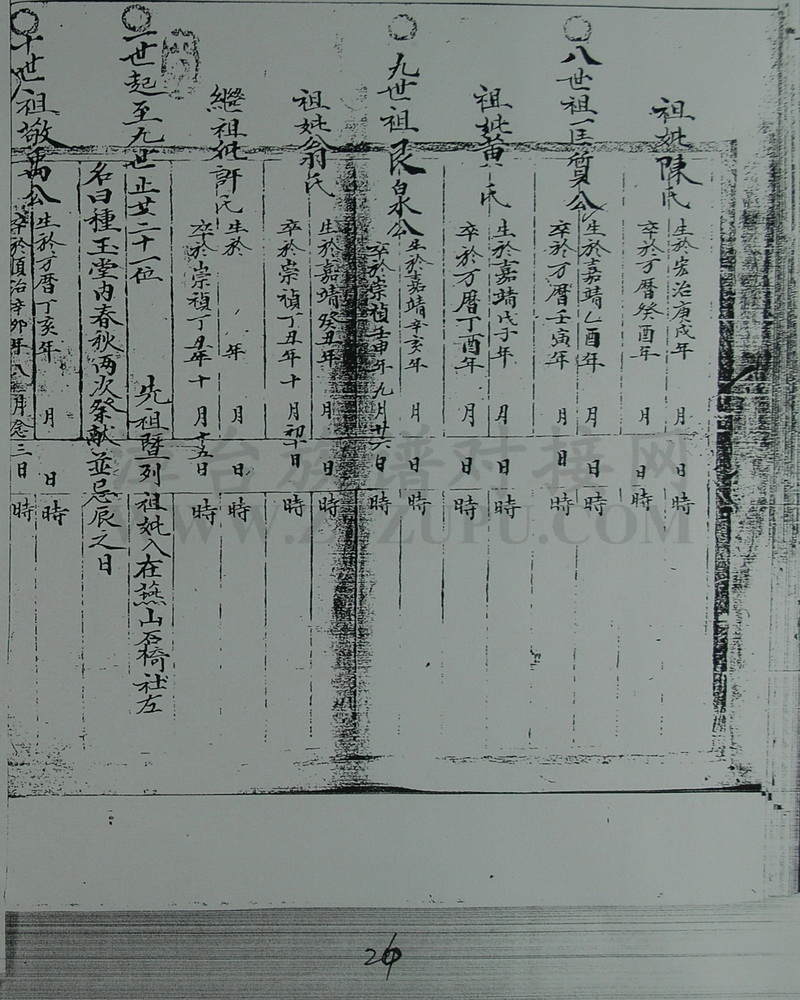 祖妣陳氏
生於宏治庚戌年 月 日 時
卒於万曆癸酉年 月 日 時
八世祖匡質公
生於嘉靖乙酉年 月 日 時
卒於万曆壬寅年 月 日 時
祖妣黄氏
生於嘉靖戊子年 月 日 時
卒於万曆丁酉年 月 日 時
九世祖艮泉公
生於嘉靖辛亥年 月 日 時
卒於崇禎壬申年九月廿六日
祖妣翁氏
生於嘉靖癸丑年 月 日 時
卒於崇禎丁丑年十月初十日 時
繼祖妣許氏
生於 年 月 日 時
卒於崇禎丁丑年十月十五日 時
一世起至九世止廿二十一位 先祖暨列祖妣入在燕山石椅社左
名曰種玉堂内春秋两次祭献並忌辰之日
十世祖敬禹公
生於万曆丁亥年 月 日 時
卒於順治辛卯年八月念三日 時
洋台族谱对接网
WWW.ZUZUPU.COM
26